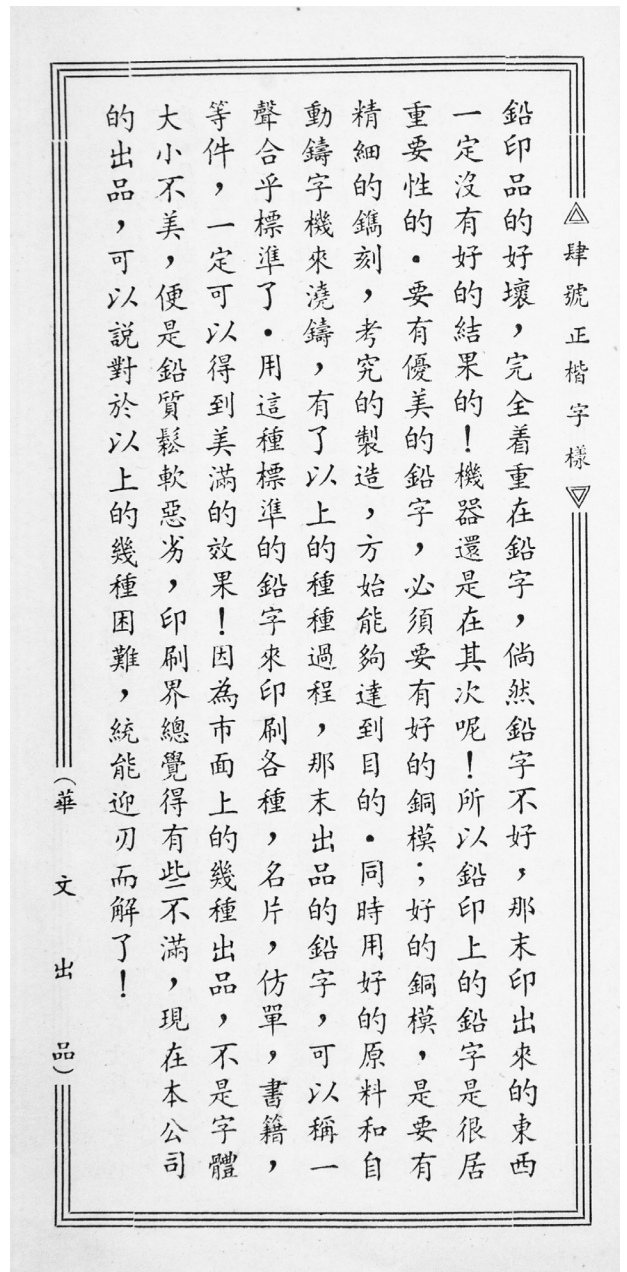 肆號正楷字樣
鉛印品的好壞，完全着重在鉛字，倘然鉛字不好，那末印出來的東西
一定沒有好的結果的！機器還是在其次呢！所以鉛印上的鉛字是很居
重要性的．要有優美的鉛字，必須要有好的銅模；好的銅模，是要有
精細的鐫刻，考究的製造，方始能夠達到目的．同時用好的原料和自
動鑄字機來澆鑄，有了以上的種種過程，那末出品的鉛字，可以稱一
聲合乎標準了．用這種標準的鉛字來印刷各種，名片，仿單，書籍，
等件，一定可以得到美滿的效果！因為市面上的幾種出品，不是字體
大小不美，便是鉛質鬆軟惡劣，印刷界總覺得有些不滿，現在本公司
的出品，可以説對於以上的幾種困難，統能迎刃而解了！
（華文出品）